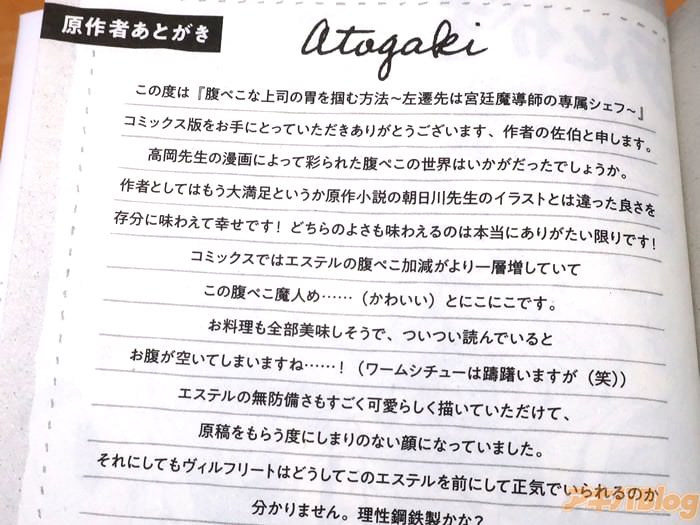 原作者あとがき
Atogaki
この度は『腹ぺこな上司の胃を掴む方法~左遷先は宮廷魔導師の専属シェフ~』
コミックス版をお手にとっていただきありがとうございます、作者の佐伯と申します。
高岡先生の漫画によって彩られた腹ぺこの世界はいかがだったでしょうか。
作者としてはもう大満足というか原作小説の朝日川先生のイラストとは違った良さを
存分に味わえて幸せです! どちらのよさも味わえるのは本当にありがたい限りです!
コミックスではエステルの腹ぺこ加減がより一層増していて
この腹ぺこ魔人め……(かわいい)とにこにこです。
お料理も全部美味しそうで、ついつい読んでいると
お腹が空いてしまいますね……!(ワームシチューは躊躇いますが(笑))
エステルの無防備さもすごく可愛らしく描いていただけて、
原稿をもらう度にしまりのない顔になっていました。
それにしてもヴィルフリートはどうしてこのエステルを前にして正気でいられるのか
分かりません。理性鋼鉄製かな?
アキバBlog